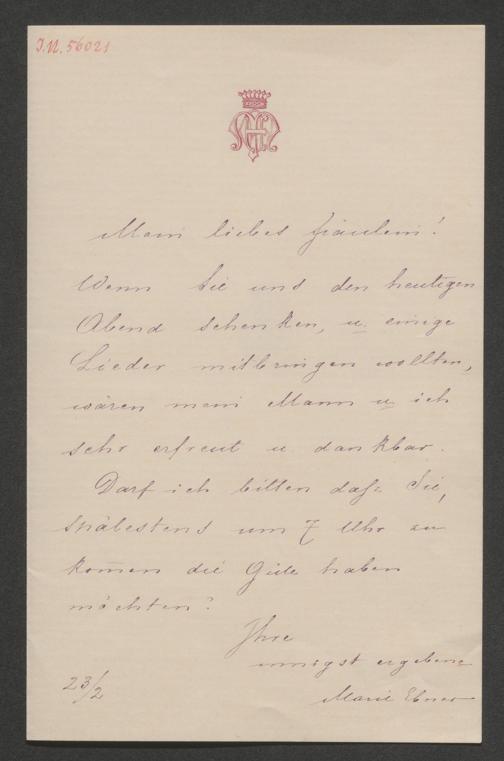 J.N. 56021
Mein liebes Fräulein!
Wenn Sie uns den heutigen
Abend schenken, u. einige
Lieder mitbringen wollten,
wären mein Mann u. ich
sehr erfreut u dankbar.
Darf ich bitten daß Sie,
spätestens um 7 Uhr zu
kom̄en die Güte haben
möchten?
Ihre
innigst ergebene
Marie Ebner
23/2